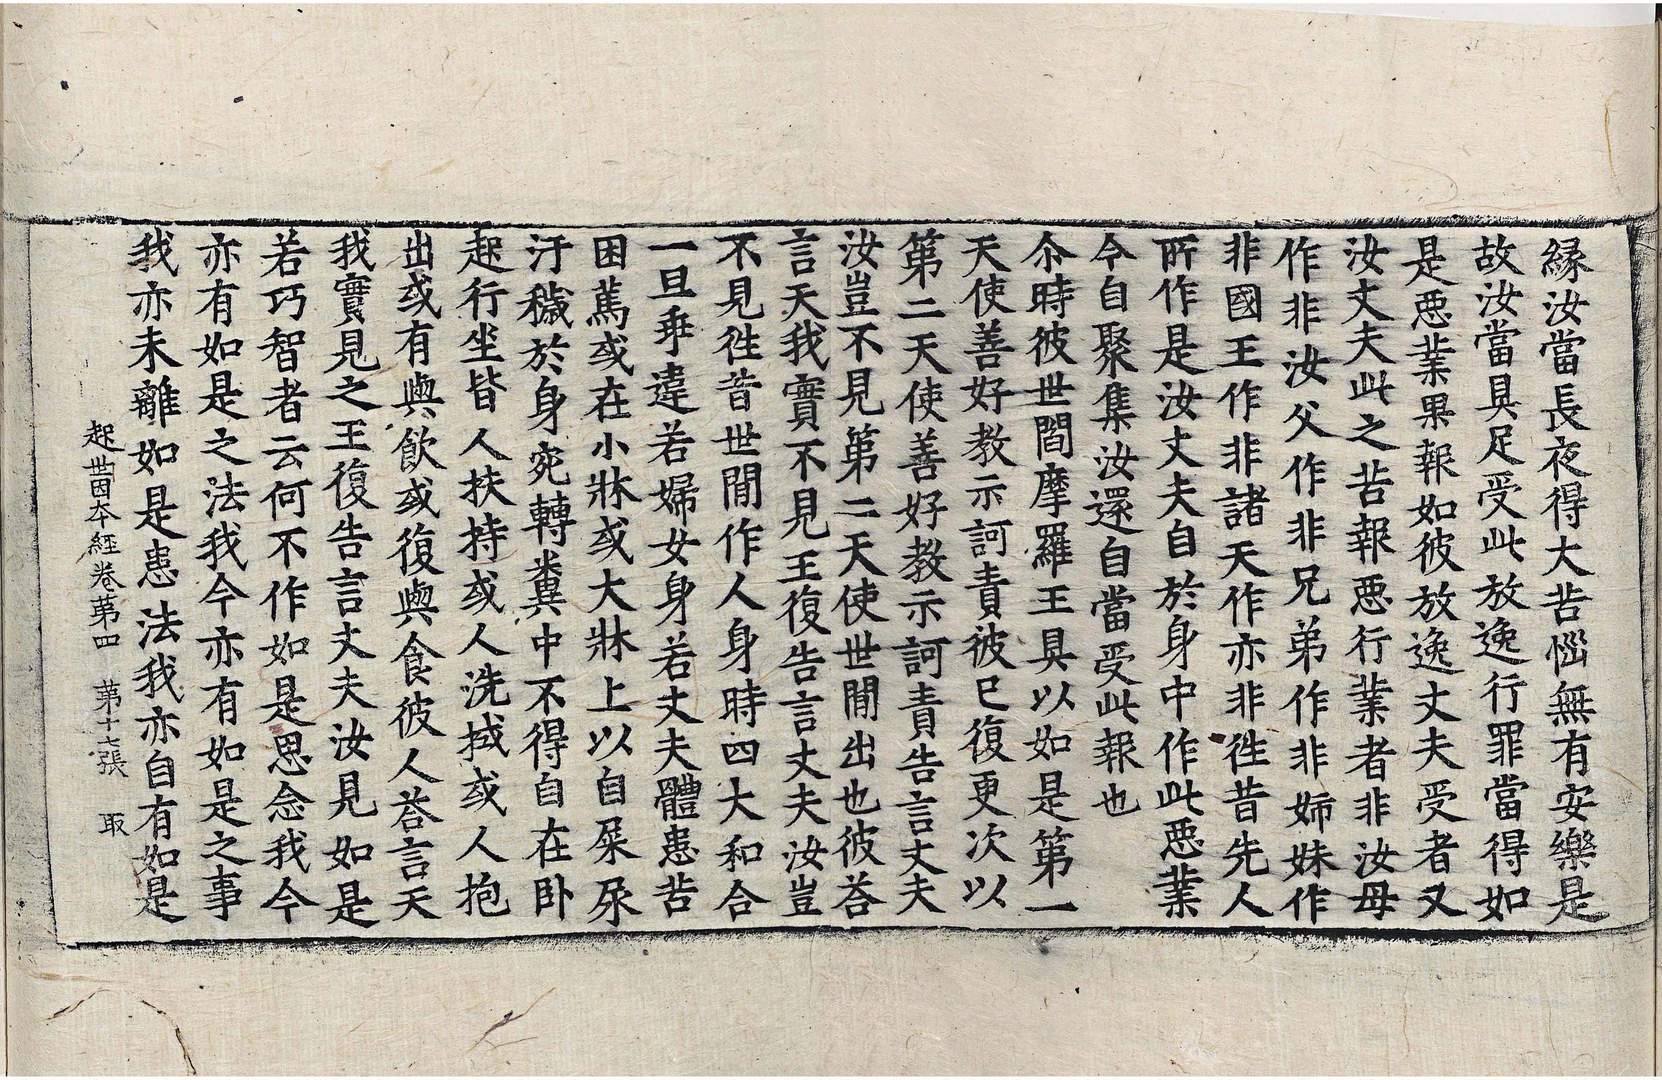 縁汝當長夜得大苦惱無有安樂是
故汝當具足受此放逸行罪當得如
是惡業果報如彼放逸丈夫受者又
汝丈夫此之苦報惡行業者非汝母
作非汝父作非兄弟作非姉妹作
非國王作非諸天作亦非徃昔先人
所作是汝丈夫自於身中作此惡業
今自聚集汝還自當受此報也
尒時彼世閻摩羅王具以如是第一
天使善好教示訶責彼已復更次以
第二天使善好教示訶責告言丈夫
汝豈不見第二天使世閒出也彼荅
言天我實不見王復告言丈夫汝豈
不見徃昔世閒作人身時四大和合
一旦乖違若婦女身若丈夫體患苦
困篤或在小牀或大牀上以自屎尿
汙穢於身宛轉糞中不得自在卧
起行坐皆人扶持或人洗拭或人抱
出或有與飲或復與食彼人荅言天
我實見之王復告言丈夫汝見如是
若巧智者云何不作如是思念我今
亦有如是之法我今亦有如是之事
我亦未離如是患法我亦自有如是
起世因夲經卷第四　第十七張　取